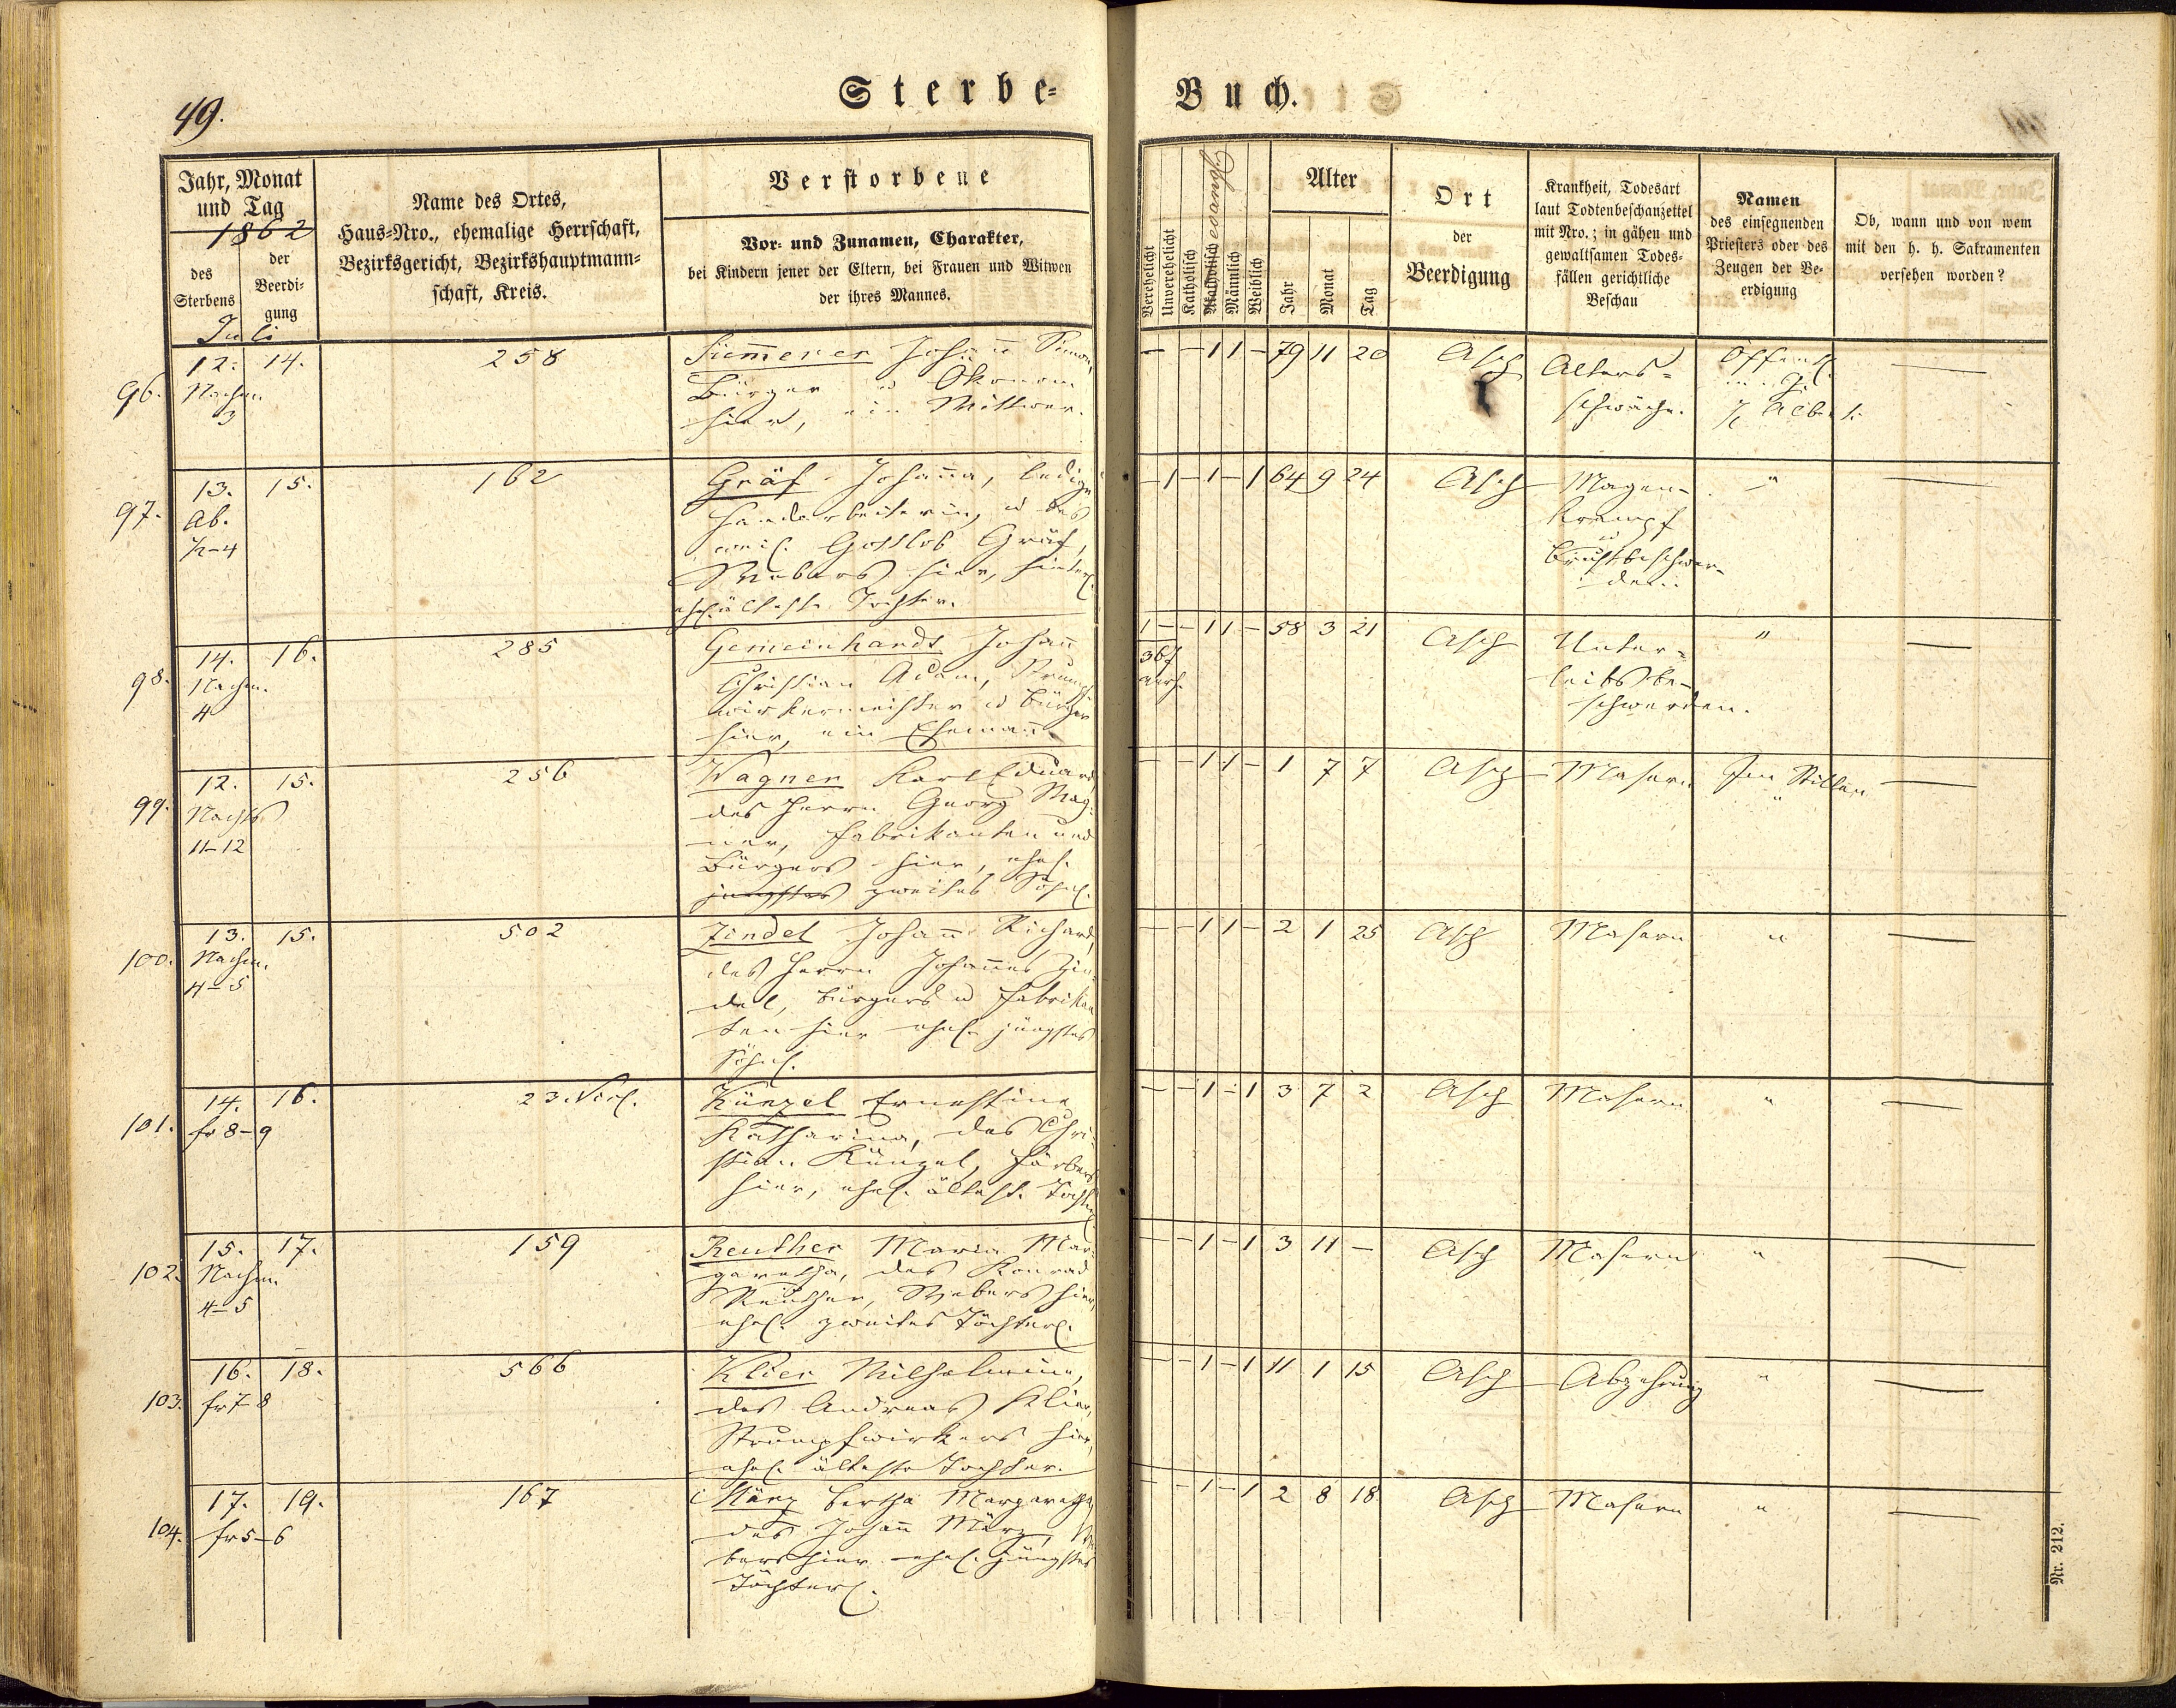 49.
Sterbe-
Buch.
Jahr, Monat
und Tag
1862
des
Sterbens
der
Beerdi-
gung
Juli
Name des Ortes,
Haus-Nro., ehemalige Herrschaft,
Bezirksgericht, Bezirkshauptmann-
schaft, Kreis.
Verstorbene
Vor- und Zunamen, Charakter,
bei Kindern jener der Eltern, bei Frauen und Witwen
der ihres Mannes.
Verehelicht
Unverehelicht
Katholisch
Akatholisch evangl.
Männlich
Weiblich
Alter
Jahr
Monat
Tag
Ort
der
Beerdigung
Krankheit, Todesart
laut Todtenbeschauzettel
mit Nro.; in gähen und
gewaltsamen Todes-
fällen gerichtliche
Beschau
Namen
des einsegnenden
Priesters oder des
Zeugen der Be-
erdigung
Ob, wann und von wem
mit den h. h. Sakramenten
versehen worden?
96.
12. 14.
Nachm.
3
258
Simmerer Johann Simon,
Bürger u Ökonom
hier, ein Wittwer.
— — 1 1 — 79 11 20
Asch
Alters-
schwäche.
Öffentl.
Alberti
97.
13. 15.
Ab.
1/2-4
162
Gräf Johanna, ledige
Handarbeiterin, u des
weil. Gottlob Gräf,
Webers hier, hinterl.
ehel. älteste Tochter.
— 1 — 1 — 1 64 9 24
Asch
Magen-
krampf
u
Brustbeschwer-
den.
"
98.
14. 16.
Nachm.
4
285
Gemeinhardt Johann
Christian Adam, Strumpf-
wirkermeister u Bürger
hier, ein Ehemann.
1 — — 1 1 — 58 3 21
36 J
verh.
Asch
Unter-
leibsbe-
schwerden.
"
99.
12. 15.
Nachts
11-12
256
Wagner Karl Eduard,
des Herrn Georg Wag-
ner, Fabrikanten und
Bürgers hier, ehel.
jüngstes zweites Söhnl.
— — 1 1 — 1 7 7
Asch
Masern
Im Stillen
"
100.
13. 15.
Nachm.
4-5
502
Zindel Johann Richard,
des Herrn Johannes Zin-
del, Bürgers u Fabrikan-
ten hier ehel. jüngstes
Söhnl.
— — 1 1 — 2 1 25
Asch
Masern
"
101.
14. 16.
fr 8-9
23. Nicl.
Künzel Ernestine
Katharina, des Chri-
stian Künzel, Färbers
hier, ehel. älteste Tochter.
— — 1 — 1 3 7 2
Asch
Masern
"
102.
15. 17.
Nachm.
4-5
159
Reuther Maria Mar-
garetha, des Konrad
Reuther, Webers hier,
ehel. zweites Töchterl.
— — 1 — 1 3 11 —
Asch
Masern
"
103.
16. 18.
fr 7-8
566
Klier Wilhelmine,
des Andreas Klier,
Strumpfwirkers hier,
ehel. älteste Tochter.
— — 1 — 1 11 1 15
Asch
Abzehrung
"
104.
17. 19.
fr 5-6
167
März Bertha Margaretha,
des Johann März, We-
bers hier ehel. jüngstes
Töchterl.
— — 1 — 1 2 8 18
Asch
Masern
"
Nr. 212.